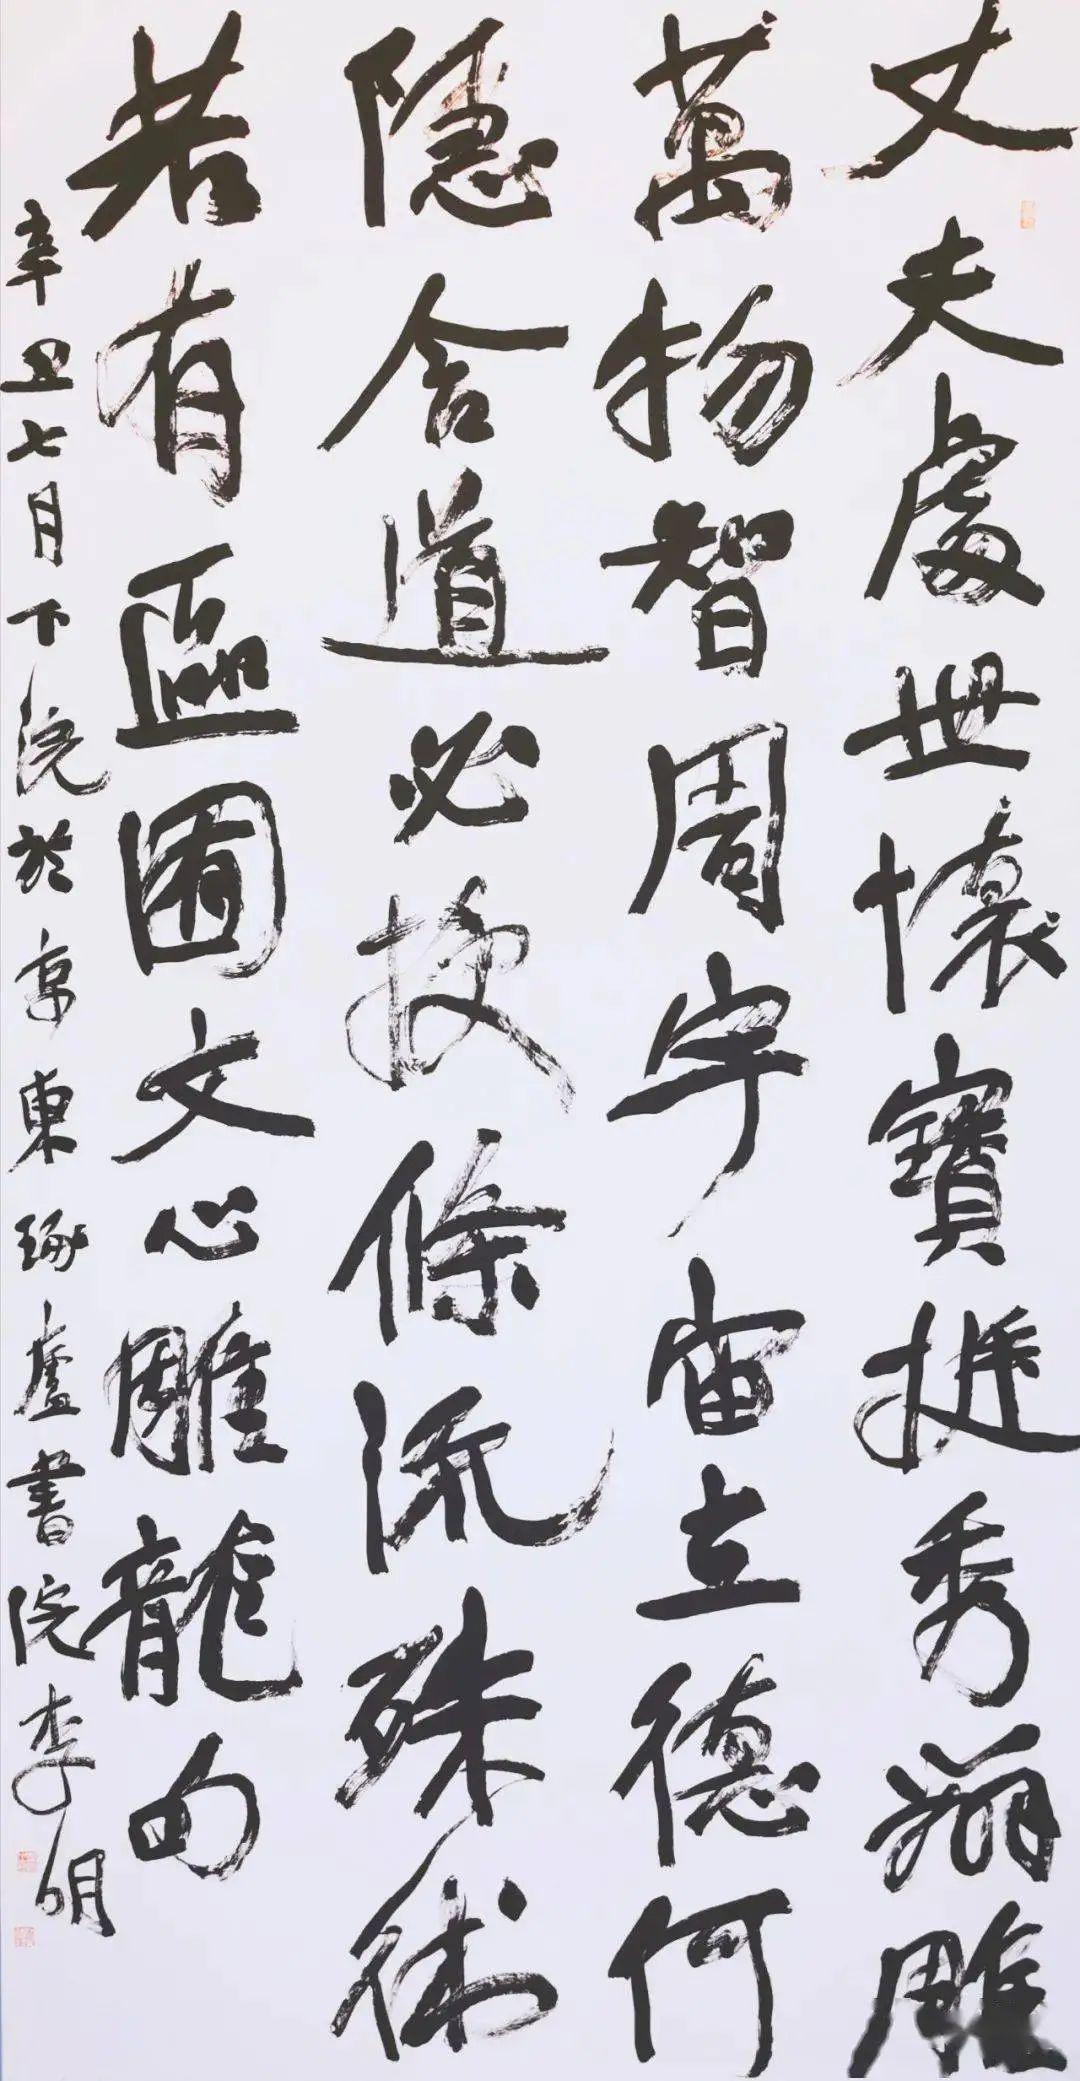 丈夫處世懷寶挺秀辨雕
萬物智周宇宙立德何
隱含道必授條流殊術
若有區囿文心雕龍句
辛丑七月下浣於京東琢廬書院李明